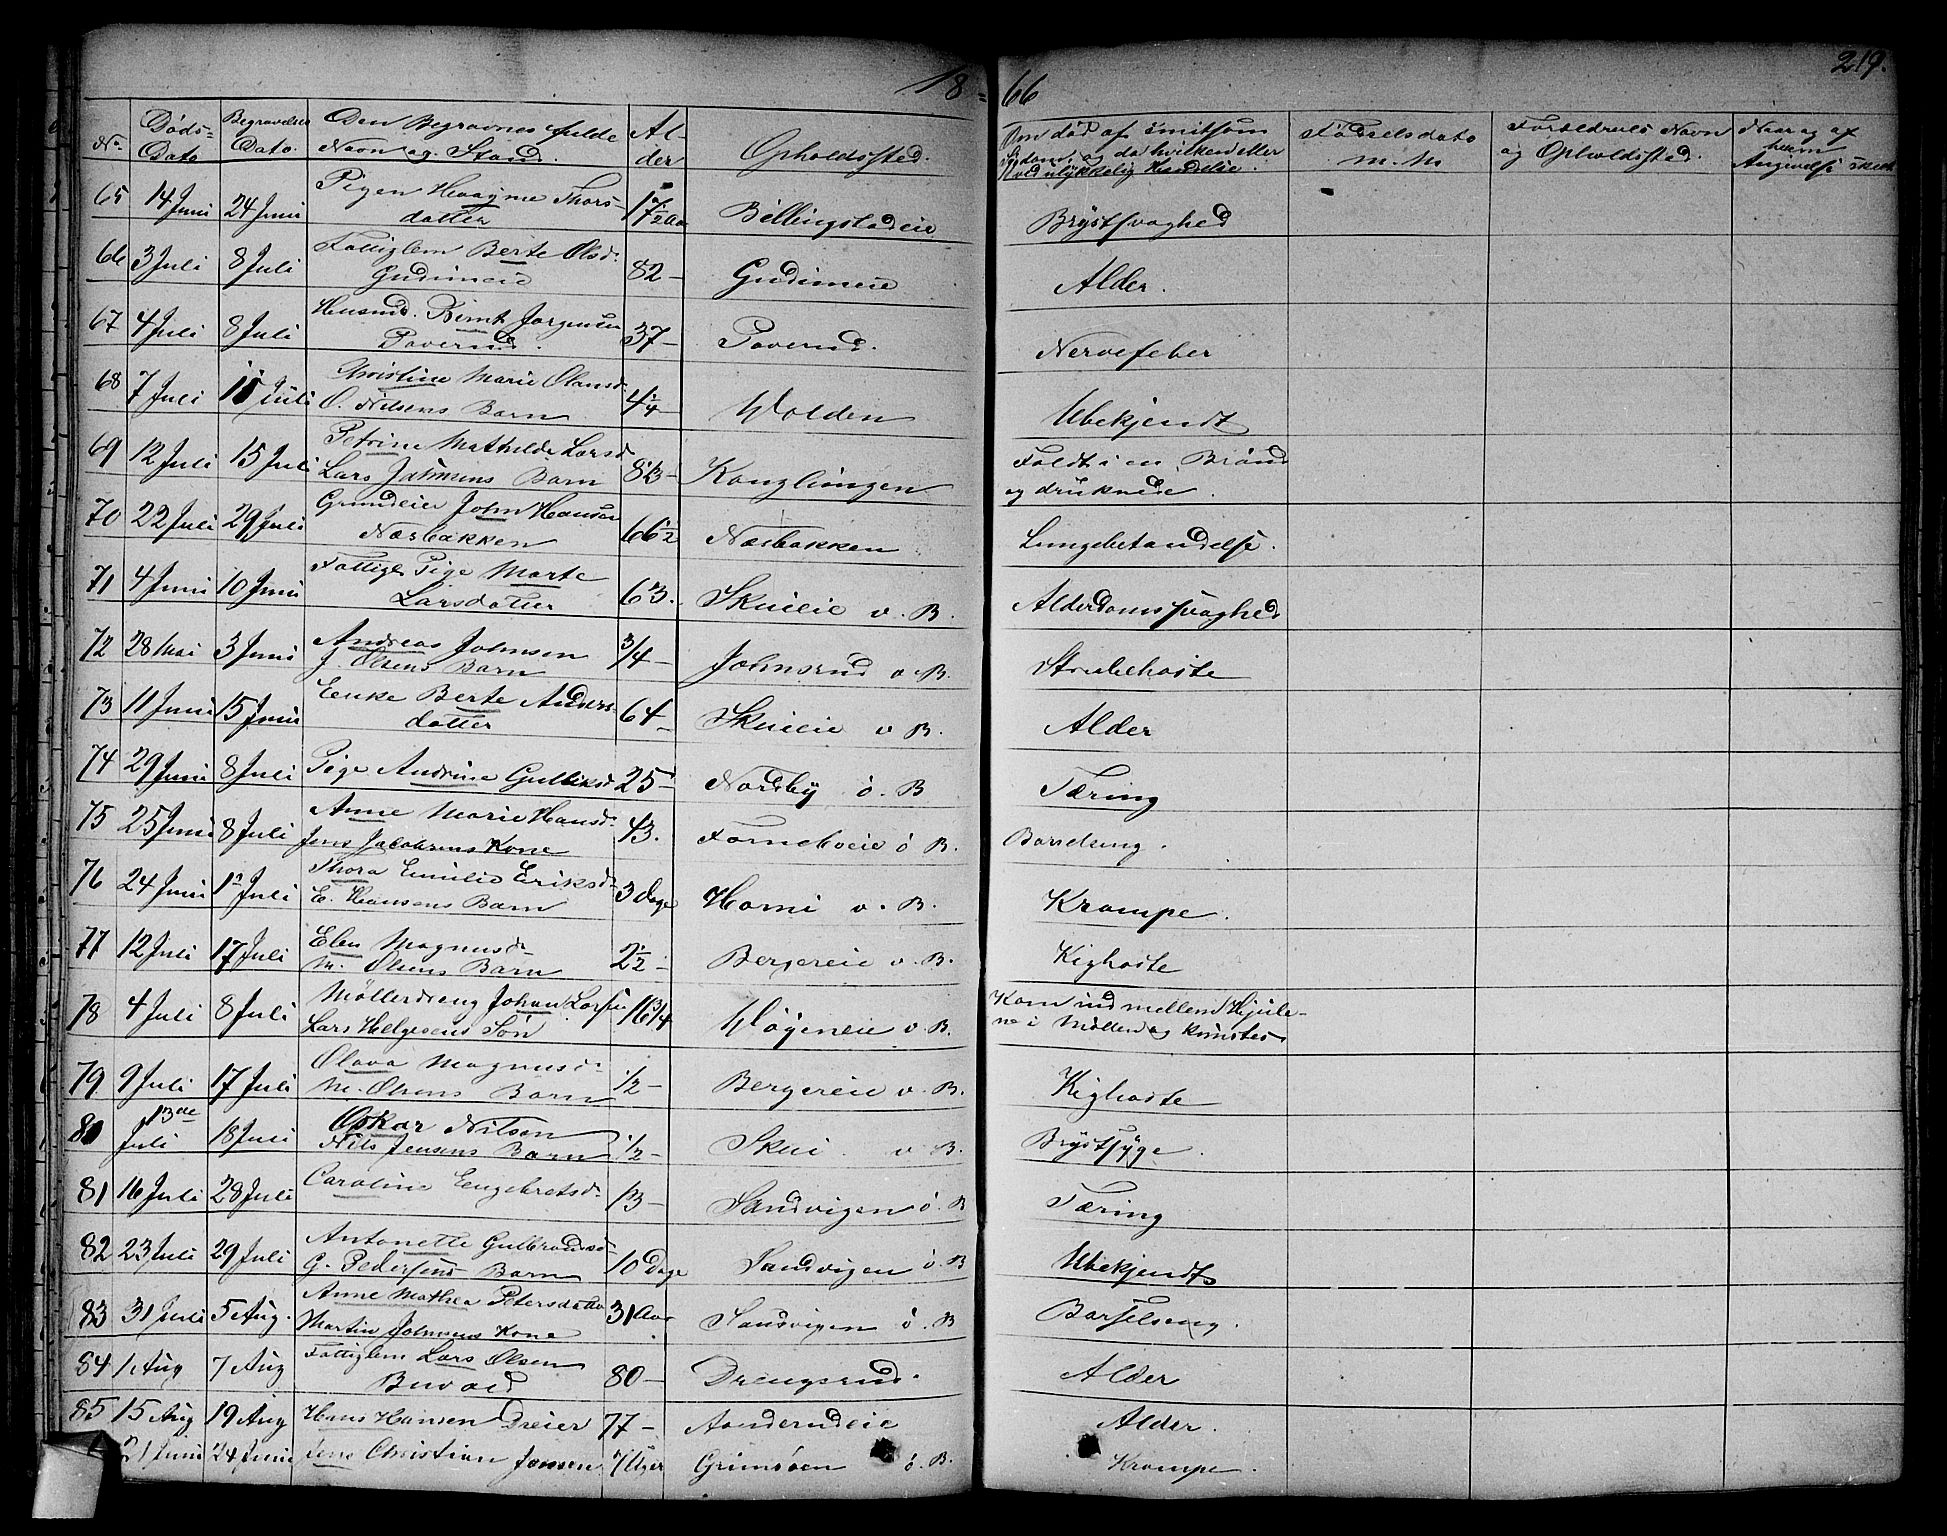 18
66
219.
No.
Døds-
Dato
Begravelses
Dato.
Den Begravnes fulde
Navn og Stand.
Al-
der
Opholdssted.
Om død af smitsom
Sygdom, og da hvilken eller
ved ulykkelig Hændelse.
Fødselsdato
m. m.
Forældrenes Navn
og Opholdssted.
Naar og af
hvem
Angivelse skeet
65 14 Juni 24 Juni Pigen Thors-
datter 17½ Aar Billingstadeie Brystsvaghed
66 3 Juli 8 Juli Fattiglem Berte Olsd.
Gudimeie 82 - Gudimeie Alder.
67 4 Juli 8 Juli Husmd. Bernt Jørgensen
Toverud. 37 - Toverud. Nervefeber
68 7 Juli 11 Juli Christine Marie Olausd.
O. Nilsens Barn 4¼ Volden Ubekjendt
69 12 Juli 15 Juli Petrine Mathilde Larsd.
Lars Jahnsens Barn 8 Kanglungen Faldt i en Brønd
og druknede.
70 22 Juli 29 Juli Grundeier John Hansen
Næsbakken 66½ Næsbakken Lungebetændelse.
71 4 Juni 10 Juni Fattige Pige Marte
Larsdatter 63. Skuieie v. B. Alderdomssvaghed
72 28 Mai 3 Juni Andreas Johnsen
J. Olsens Barn 3/4 - Johnsrud v. B. Strubehoste
73 11 Juni 15 Juni Enke Berte Anders-
datter 64 - Skuieie v B. Alder
74 29 Juni 8 Juli Pige Andrine Gulliksd. 25 - Nordby ö. B Tæring
75 25 Juni 8 Juli Anne Marie Hansd.
Jens Jacobsens Kone 43. Forneboeie ö B. Barselseng.
76 24 Juni 1 Juli Thora Emilie Eriksd.
E. Hansens Barn 3 Dage Horni v. B. Krampe.
77 12 Juli 17 Juli Elen Magnusd.
M. Olsens Barn 2½ - Bergereie v. B. Kighoste
78 4 Juli 8 Juli Möllerdreng Johan Larsen
Lars Helgesens Søn 16 3/4 Vøyeneie v. B. Kom ind mellem Hjule-
ne i Møllen og knustes.
79 9 Juli 17 Juli Olava Magnusd.
M. Olsens Barn 1/2 - Bergereie v. B. Kighoste
80 13de
Juli 18 Juli Oskar Nilsen
Nils Jensens Barn 1/2 - Skui. v. B. Brystsyge.
81 16 Juli 28 Juli Caroline Engebretsd. 13 - Sandvigen ö. B Tæring
82 23 Juli 29 Juli Antonette Gulbrandsd.
G. Pedersens Barn 10 Dage Sandvigen ö. B Ubekjendt
83 31 Juli 5 Aug. Anne Mathea Petersdatter
Martin Johnsens Kone 31 Aar Sandvigen ö. B Barselseng.
84 1 Aug 7 Aug Fattiglem Lars Olsen
Buvad 80 - Drengsrud. Alder
85 15 Aug 19 Aug Hans Hansen Dreier 77 - Alder.
21 Juni 24 Juni Jens Christian Jansen 7 Uger Grimsøen ö. B. Krampe.